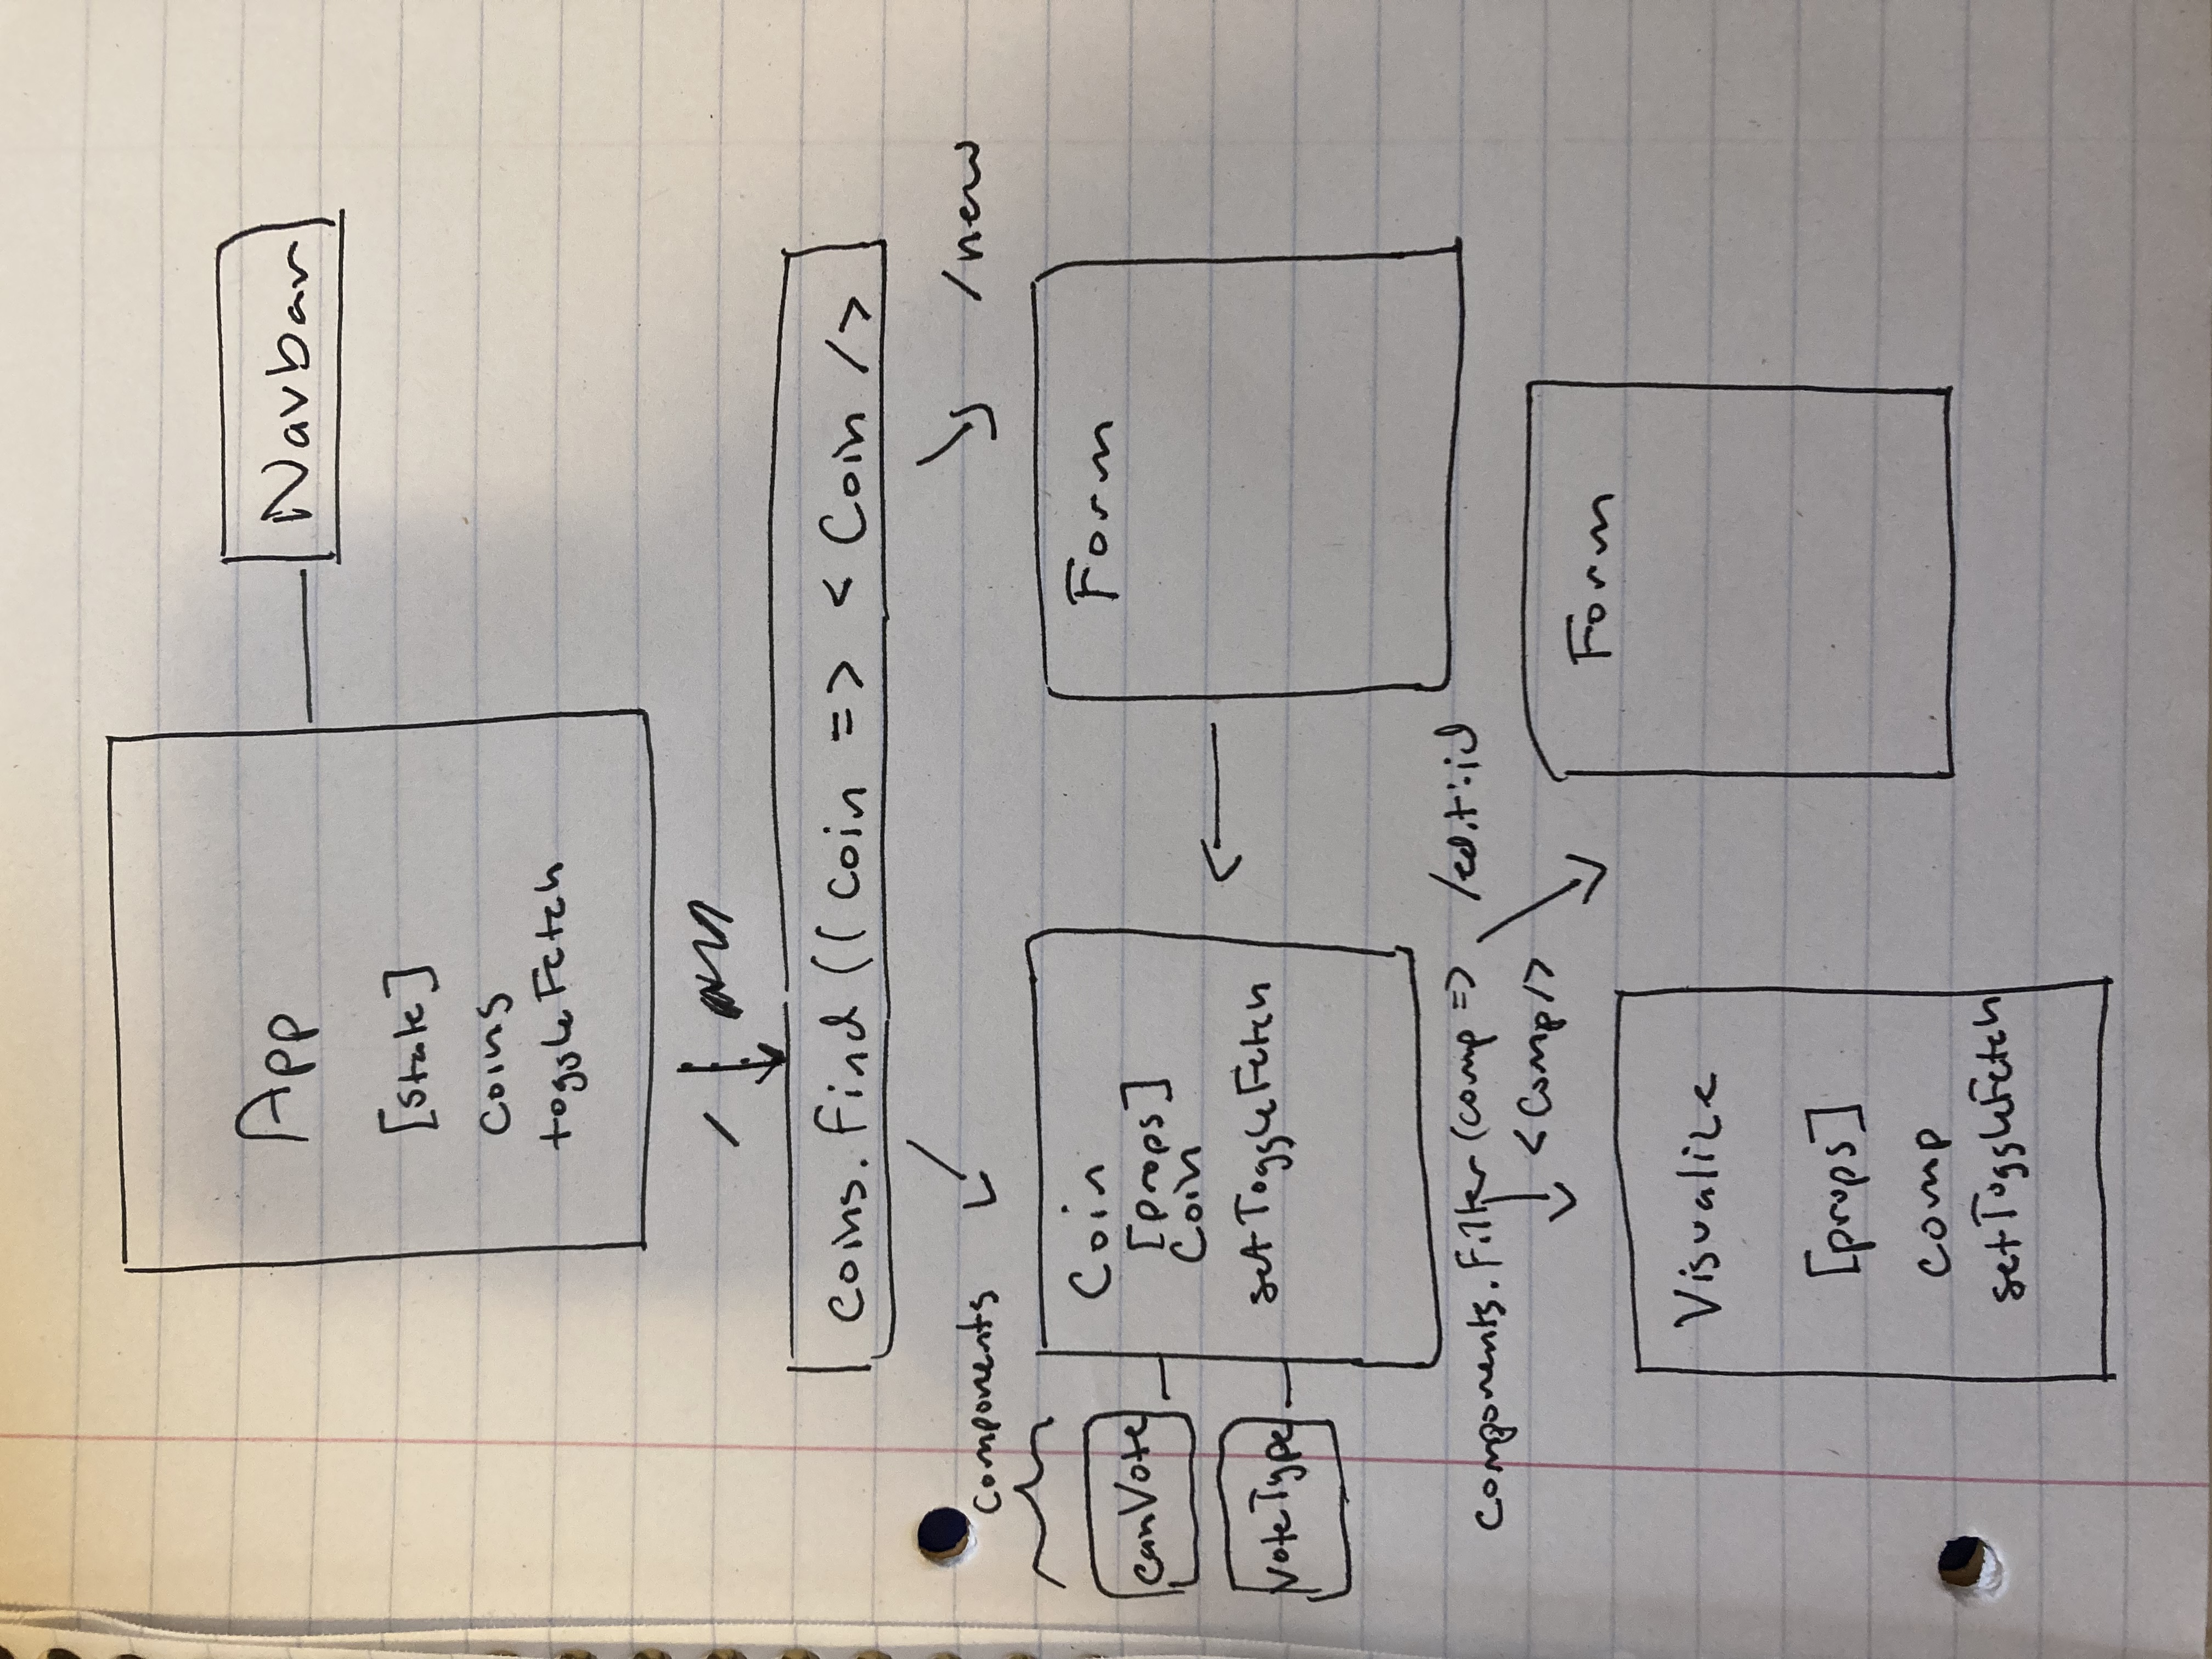 App
Navbar
[state]
coins
toggleFetch
/
coins.find((coin => <Coin />
/new
components
canVote
voteType
Coin
[props]
Coin
setToggleFetch
Form
components.filter(comp => /edit:id
<Comp/>
Form
Visualize
[props]
comp
setToggleFetch